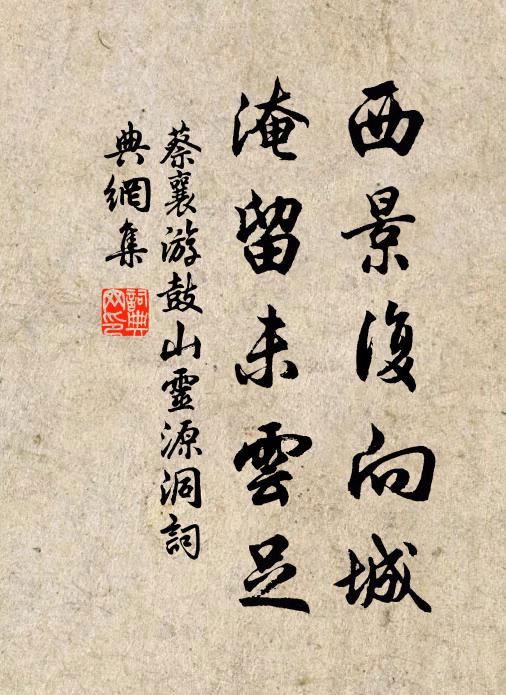 西景復向城
淹留未雲足
蔡襄游鼓山靈源洞詞
典網集
詞典網印